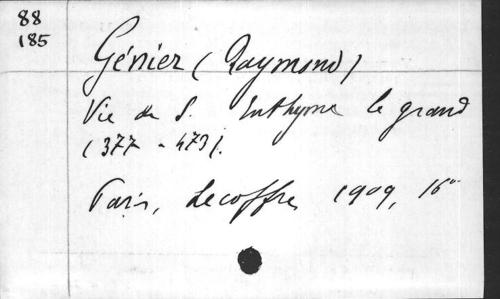 88
185
Génier (Raymond)
Vie de S. Euthyme le grand
(377-473).
Paris, Lecoffre, 1909, 16°